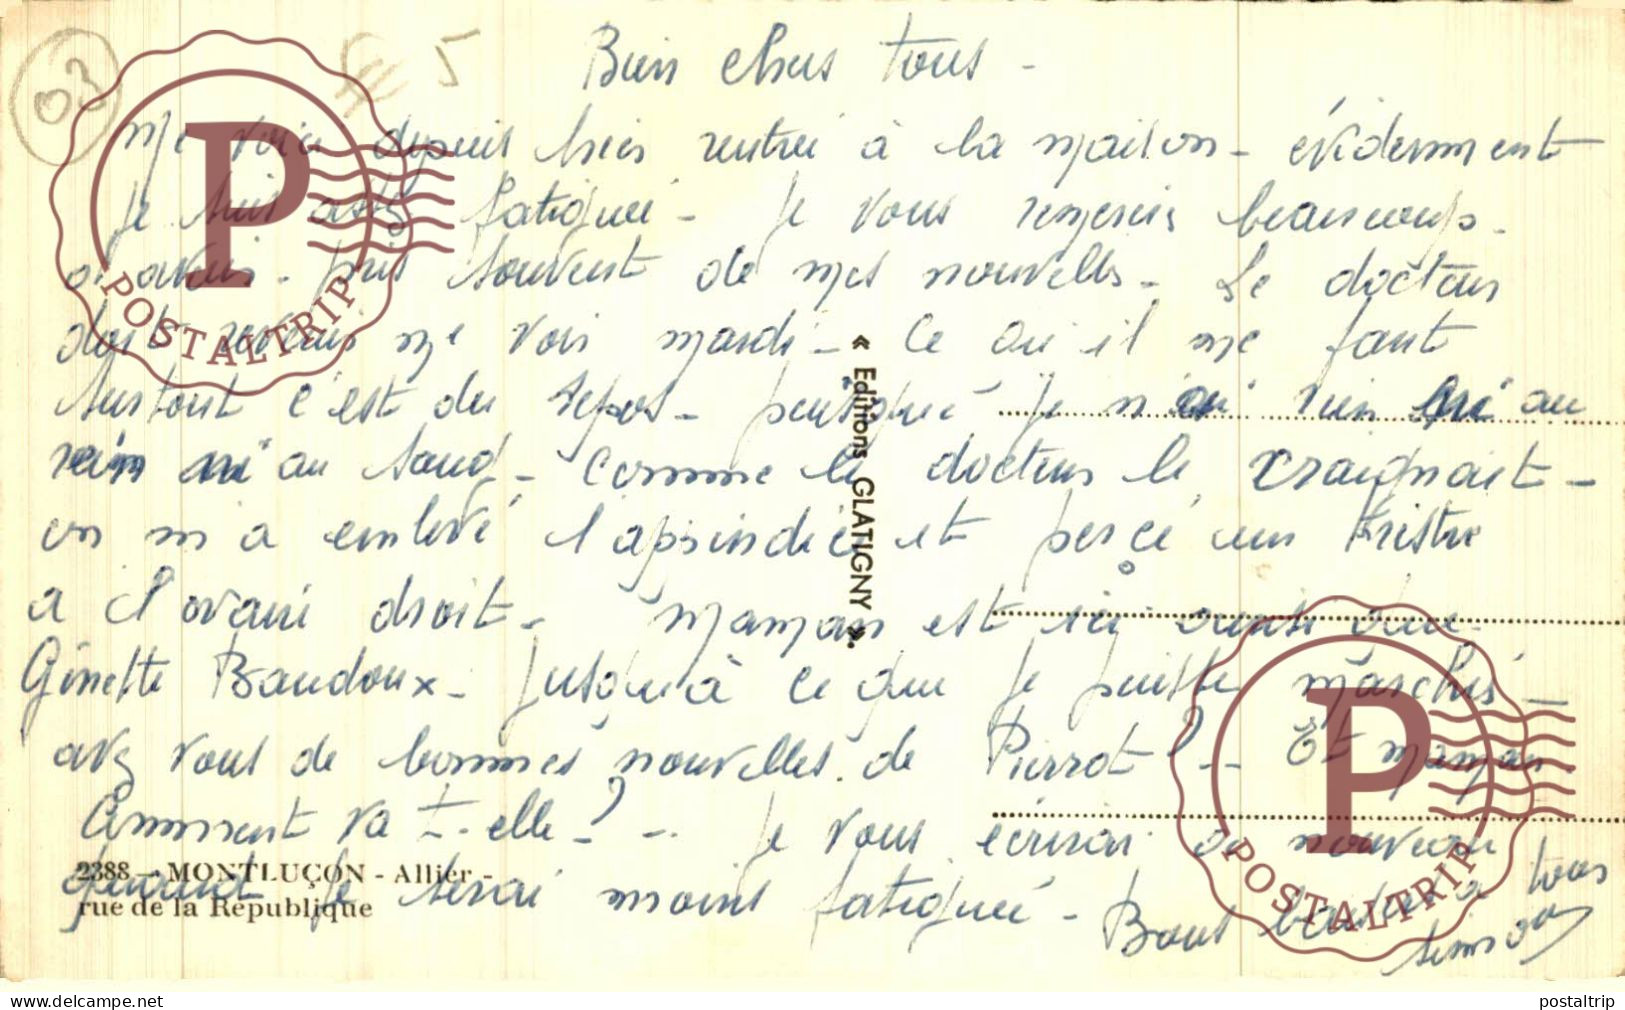 03
5
Bien chers tous -
Me voici depuis hier rentrée à la maison - évidemment
je suis assez fatiguée - Je vous remercie beaucoup
d'avoir pris souvent de mes nouvelles - Le docteur
doit revenir me voir mardi - Ce qu'il me faut
surtout c'est du repos - puisque je n'ai rien ni au
rein ni au sang - Comme le docteur le craignait -
on m'a enlevé l'appendice et percé un kriste
a l'ovaire droit - Maman est ici ainsi que
Ginette Baudoux - jusqu'à ce que je puisse marcher -
avez vous de bonnes nouvelles de Pierrot ? - Et maman
Comment va t-elle ? - Je vous écrirai de nouveau
quand je serai moins fatiguée - Bons baisers à tous
Simone
« Editions GLATIGNY ».
2388 - MONTLUÇON - Allier -
rue de la République
P
POSTALTRIP
P
POSTALTRIP
www.delcampe.net
postaltrip